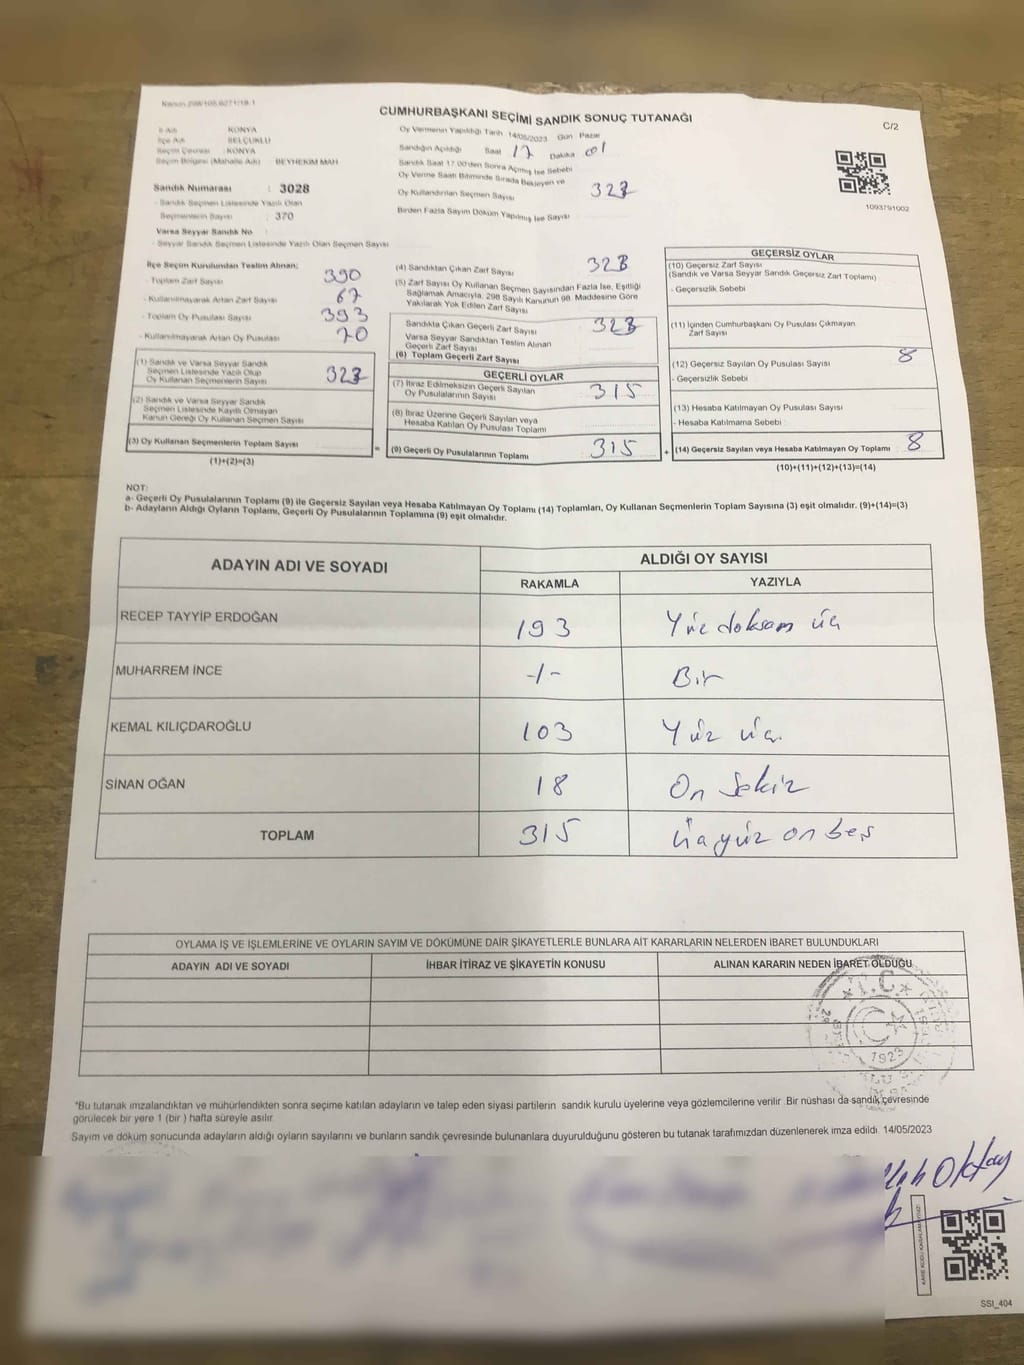 Kanun 298/105,6271/18-1
CUMHURBAŞKANI SEÇİMİ SANDIK SONUÇ TUTANAĞI
C/2
İl Adı : KONYA
İlçe Adı : SELÇUKLU
Seçim Çevresi : KONYA
Seçim Bölgesi (Mahalle Adı) : BEYHEKİM MAH
Sandık Numarası : 3028
- Sandık Seçmen Listesinde Yazılı Olan
Seçmenlerin Sayısı : 370
Varsa Seyyar Sandık No :
- Seyyar Sandık Seçmen Listesinde Yazılı Olan Seçmen Sayısı
Oy Vermenin Yapıldığı Tarih 14/05/2023 Gün Pazar
Sandığın Açıldığı Saat 17 Dakika 01
Sandık Saat 17:00'den Sonra Açmış İse Sebebi
Oy Verme Saati Bitiminde Sırada Bekleyen ve
Oy Kullandırılan Seçmen Sayısı 323
Birden Fazla Sayım Döküm Yapılmış İse Sayısı
1093791002
İlçe Seçim Kurulundan Teslim Alınan;
- Toplam Zarf Sayısı 390
- Kullanılmayarak Artan Zarf Sayısı 67
- Toplam Oy Pusulası Sayısı 393
- Kullanılmayarak Artan Oy Pusulası 70
(1) Sandık ve Varsa Seyyar Sandık
Seçmen Listesinde Yazılı Olup
Oy Kullanan Seçmenlerin Sayısı 323
(2) Sandık ve Varsa Seyyar Sandık
Seçmen Listesinde Kayıtlı Olmayan
Kanun Gereği Oy Kullanan Seçmen Sayısı
(3) Oy Kullanan Seçmenlerin Toplam Sayısı =
(1)+(2)=(3)
(4) Sandıktan Çıkan Zarf Sayısı 323
(5) Zarf Sayısı Oy Kullanan Seçmen Sayısından Fazla İse, Eşitliği
Sağlamak Amacıyla, 298 Sayılı Kanunun 98. Maddesine Göre
Yakılarak Yok Edilen Zarf Sayısı
Sandıkta Çıkan Geçerli Zarf Sayısı 323
Varsa Seyyar Sandıktan Teslim Alınan
Geçerli Zarf Sayısı
(6) Toplam Geçerli Zarf Sayısı
GEÇERLİ OYLAR
(7) İtiraz Edilmeksizin Geçerli Sayılan
Oy Pusulalarının Sayısı 315
(8) İtiraz Üzerine Geçerli Sayılan veya
Hesaba Katılan Oy Pusulası Toplamı
(9) Geçerli Oy Pusulalarının Toplamı 315 +
GEÇERSİZ OYLAR
(10) Geçersiz Zarf Sayısı
(Sandık ve Varsa Seyyar Sandık Geçersiz Zarf Toplamı)
- Geçersizlik Sebebi
(11) İçinden Cumhurbaşkanı Oy Pusulası Çıkmayan
Zarf Sayısı
(12) Geçersiz Sayılan Oy Pusulası Sayısı 8
- Geçersizlik Sebebi
(13) Hesaba Katılmayan Oy Pusulası Sayısı
- Hesaba Katılmama Sebebi
(14) Geçersiz Sayılan veya Hesaba Katılmayan Oy Toplamı 8
(10)+(11)+(12)+(13)=(14)
NOT:
a- Geçerli Oy Pusulalarının Toplamı (9) ile Geçersiz Sayılan veya Hesaba Katılmayan Oy Toplamı (14) Toplamları, Oy Kullanan Seçmenlerin Toplam Sayısına (3) eşit olmalıdır. (9)+(14)=(3)
b- Adayların Aldığı Oyların Toplamı, Geçerli Oy Pusulalarının Toplamına (9) eşit olmalıdır.
ADAYIN ADI VE SOYADI
ALDIĞI OY SAYISI
RAKAMLA YAZIYLA
RECEP TAYYİP ERDOĞAN 193 Yüz doksan üç
MUHARREM İNCE -1- Bir
KEMAL KILIÇDAROĞLU 103 Yüz üç
SİNAN OĞAN 18 On Sekiz
TOPLAM 315 Üçyüz on beş
OYLAMA İŞ VE İŞLEMLERİNE VE OYLARIN SAYIM VE DÖKÜMÜNE DAİR ŞİKAYETLERLE BUNLARA AİT KARARLARIN NELERDEN İBARET BULUNDUKLARI
ADAYIN ADI VE SOYADI İHBAR İTİRAZ VE ŞİKAYETİN KONUSU ALINAN KARARIN NEDEN İBARET OLDUĞU
T.C.
1923
*Bu tutanak imzalandıktan ve mühürlendikten sonra seçime katılan adayların ve talep eden siyasi partilerin sandık kurulu üyelerine veya gözlemcilerine verilir. Bir nüshası da sandık çevresinde
görülecek bir yere 1 (bir ) hafta süreyle asılır.
Sayım ve döküm sonucunda adayların aldığı oyların sayılarını ve bunların sandık çevresinde bulunanlara duyurulduğunu gösteren bu tutanak tarafımızdan düzenlenerek imza edildi. 14/05/2023
Oktay
SSI_404